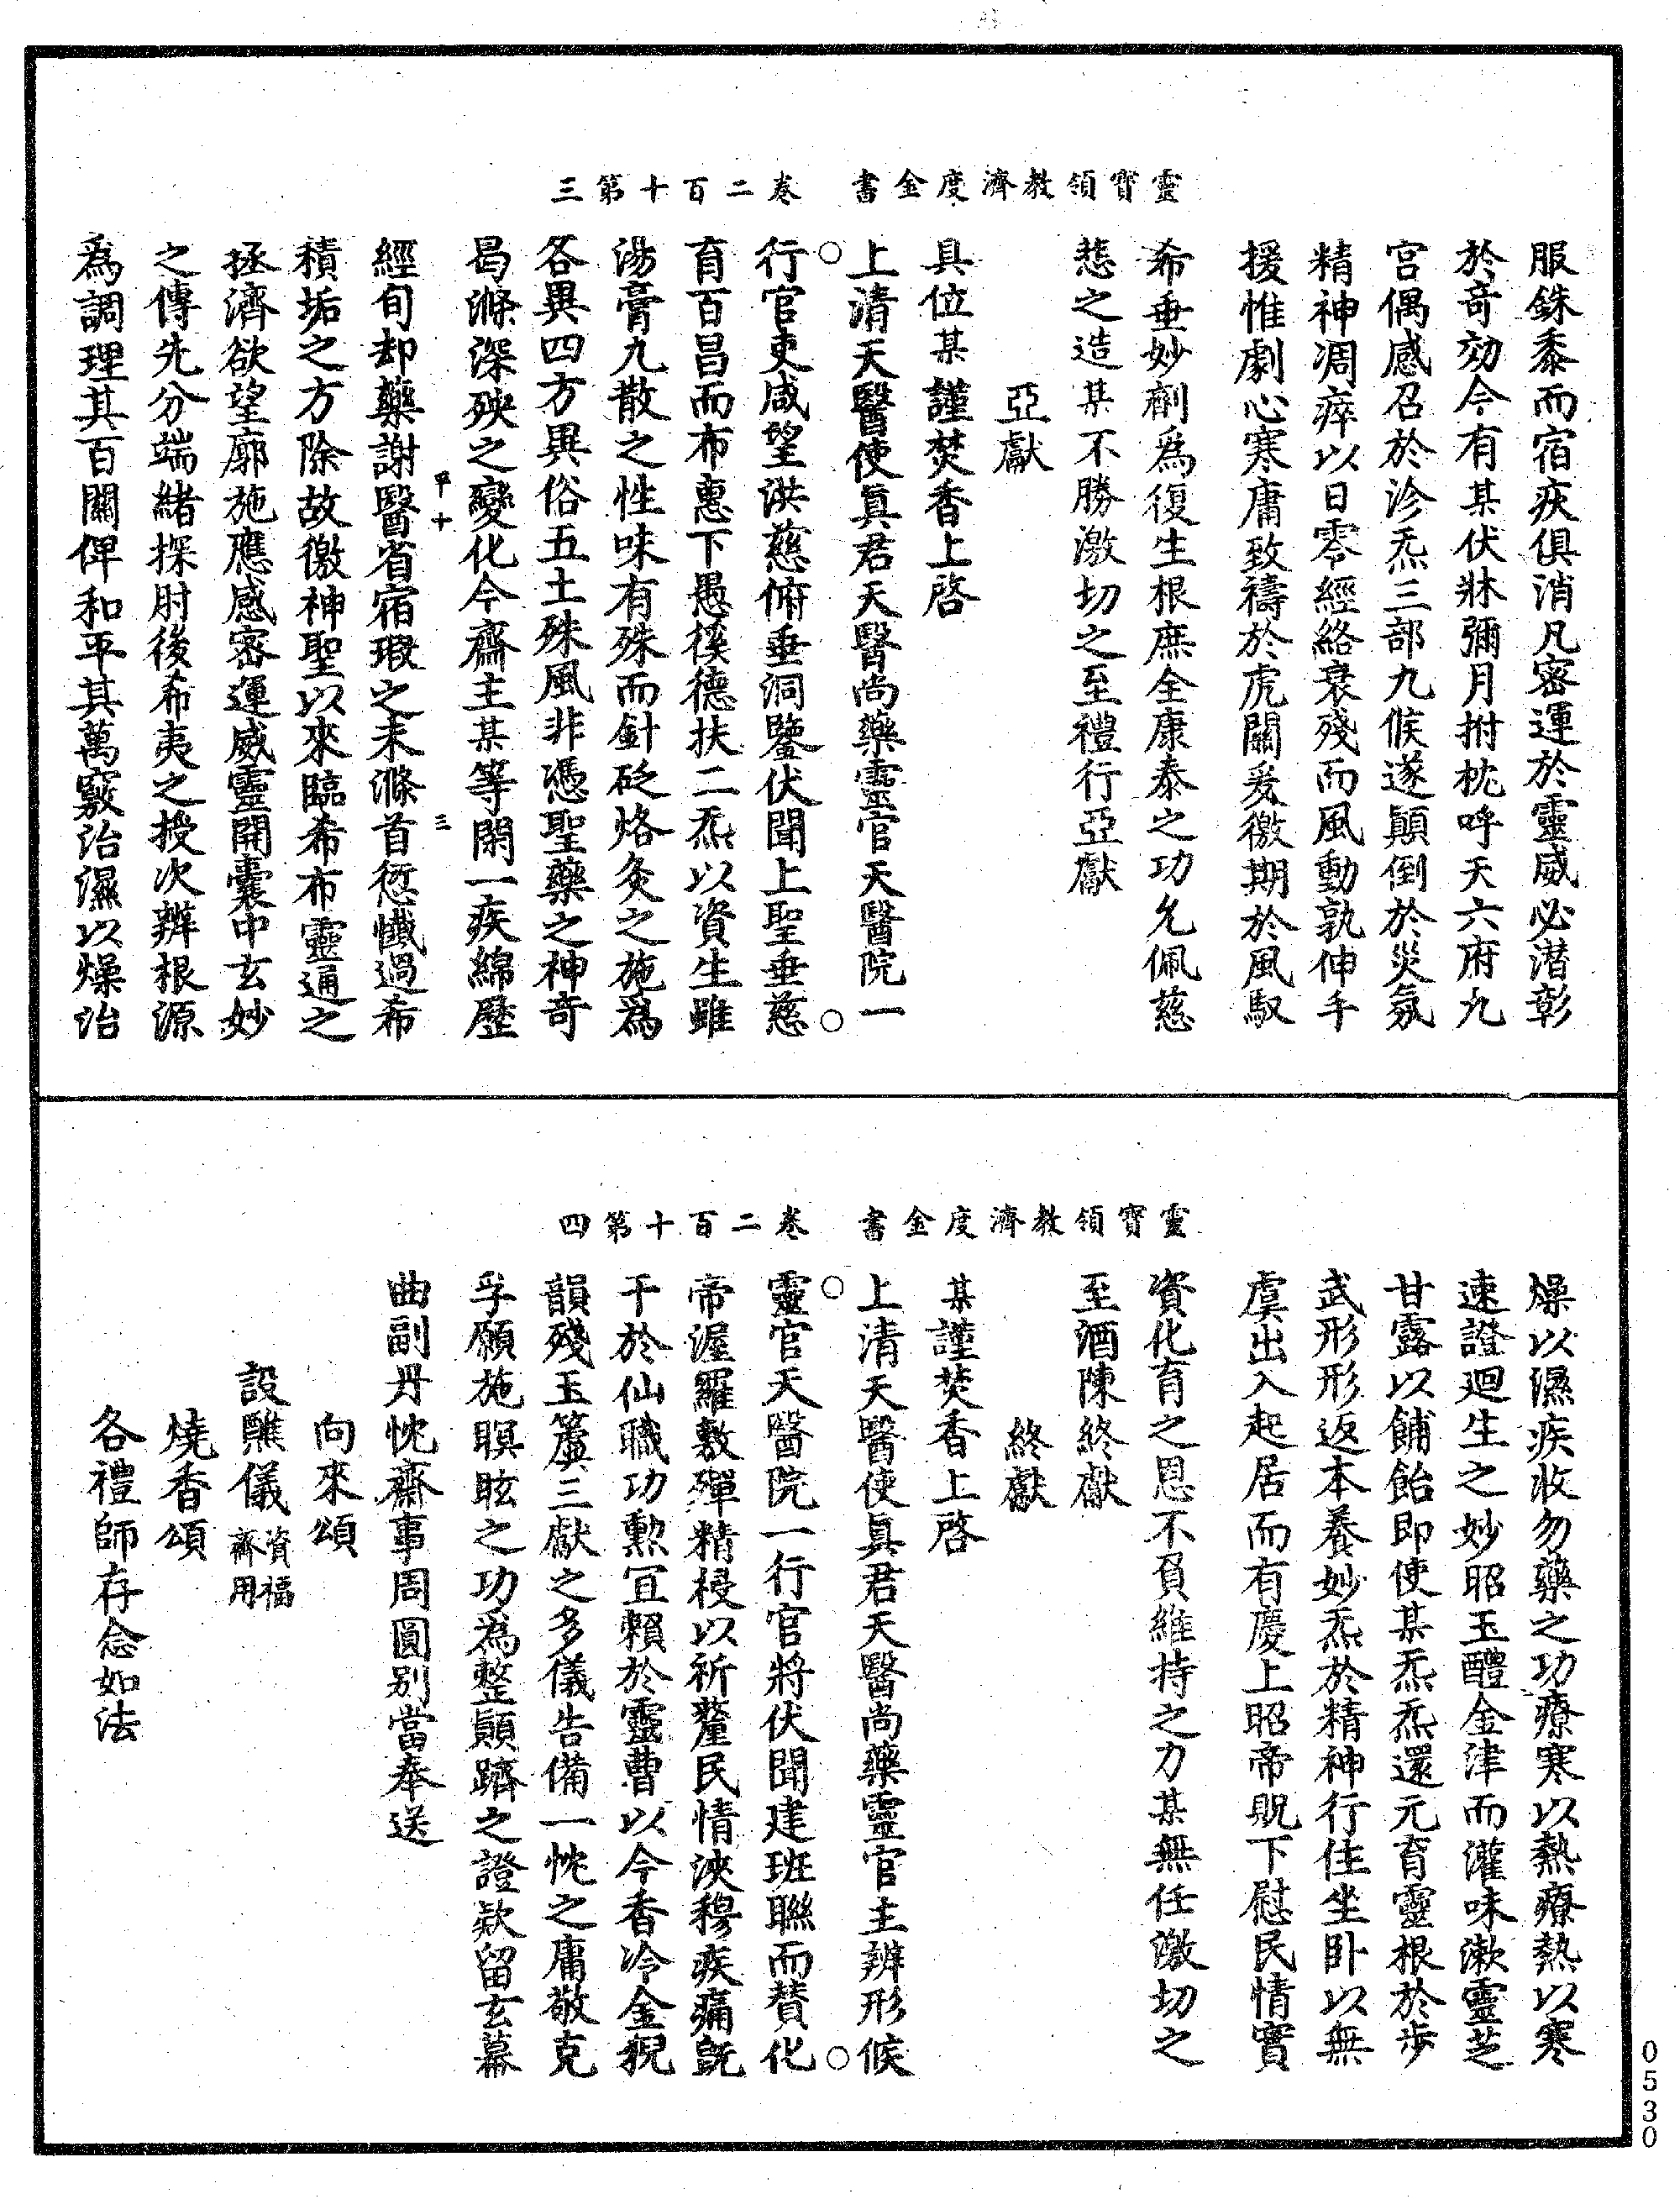 靈寶領教濟度金書　卷二百十第三
服銖黍而宿疾俱消凡密運於靈威必潜彰
於奇効今有某伏牀彌月拊枕呼天六府九
宫偶感召於沴炁三部九候遂顛倒於災氛
精神凋瘁以日零經絡衰殘而風動孰伸手
援惟劇心寒庸致禱於虎關爰徼期於風馭
希垂妙劑爲復生根庶全康泰之功允佩慈
悲之造某不勝激切之至禮行亞獻
亞獻
具位某謹焚香上啓
上清天醫使眞君天醫尚藥靈官天醫院一
行官吏咸望洪慈俯垂洞鑒伏聞上聖垂慈
育百昌而布惠下愚徯德扶二炁以資生雖
湯膏九散之性味有殊而針砭烙灸之施爲
各異四方異俗五土殊風非憑聖藥之神奇
曷滌深殃之變化今齋主某等閑一疾綿歷
經旬却藥謝醫省宿瑕之未滌首愆懺過希
積垢之方除故徼神聖以來臨希布靈通之
拯濟欲望廓施應感密運威靈開囊中玄妙
之傳先分端緒探肘後希夷之授次辨根源
爲調理其百關俾和平其萬竅治濕以燥治
平十
三
靈寶領教濟度金書　卷二百十第四
燥以濕疾收勿藥之功療寒以熱療熱以寒
速證迴生之妙昭玉醴金津而灌味漱靈芝
甘露以餔飴即使某炁炁還元育靈根於步
武形形返本養妙炁於精神行住坐卧以無
虞出入起居而有慶上昭帝貺下慰民情實
資化育之恩不負維持之力某無任激切之
至酒陳終獻
終獻
某謹焚香上啓
上清天醫使眞君天醫尚藥靈官主辨形候
靈官天醫院一行官將伏聞建班聯而賛化
帝渥羅敷殫精祲以祈釐民情浹穆疾痛旣
干於仙職功勲冝賴於靈曹以今香冷金猊
韻殘玉簴三獻之多儀告備一忱之庸敬克
孚願施瞑眩之功爲整顛躋之證欵留玄幕
曲副丹忱齋事周圓别當奉送
向來頌
設醮儀資福齋用
燒香頌
各禮師存念如法
0530